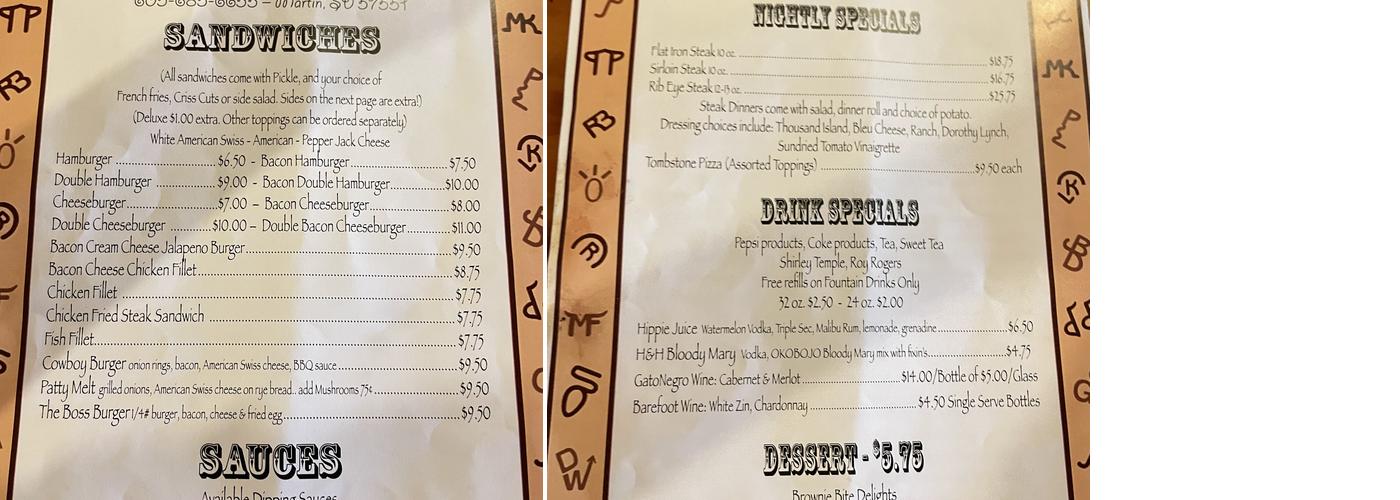 605-685-6655 – Martin, SD 57551
SANDWICHES
(All sandwiches come with Pickle, and your choice of
French fries, Criss Cuts or side salad. Sides on the next page are extra!)
(Deluxe $1.00 extra. Other toppings can be ordered separately)
White American Swiss - American - Pepper Jack Cheese
Hamburger ........................ $6.50 - Bacon Hamburger ........................ $7.50
Double Hamburger ................ $9.00 - Bacon Double Hamburger ................ $10.00
Cheeseburger ........................ $7.00 – Bacon Cheeseburger ........................ $8.00
Double Cheeseburger ........... $10.00 – Double Bacon Cheeseburger ........... $11.00
Bacon Cream Cheese Jalapeno Burger ........................ $9.50
Bacon Cheese Chicken Fillet ........................ $8.75
Chicken Fillet ........................ $7.75
Chicken Fried Steak Sandwich ........................ $7.75
Fish Fillet ........................ $7.75
Cowboy Burger onion rings, bacon, American Swiss cheese, BBQ sauce ........................ $9.50
Patty Melt grilled onions, American Swiss cheese on rye bread.. add Mushrooms 75¢ ........................ $9.50
The Boss Burger 1/4# burger, bacon, cheese & fried egg ........................ $9.50
SAUCES
Available Dipping Sauces
NIGHTLY SPECIALS
Flat Iron Steak 10 oz. ........................ $18.75
Sirloin Steak 10 oz. ........................ $16.75
Rib Eye Steak 12-13 oz. ........................ $25.75
Steak Dinners come with salad, dinner roll and choice of potato.
Dressing choices include: Thousand Island, Bleu Cheese, Ranch, Dorothy Lynch,
Sundried Tomato Vinaigrette
Tombstone Pizza (Assorted Toppings) ........................ $9.50 each
DRINK SPECIALS
Pepsi products, Coke products, Tea, Sweet Tea
Shirley Temple, Roy Rogers
Free refills on Fountain Drinks Only
32 oz. $2.50 - 24 oz. $2.00
Hippie Juice Watermelon Vodka, Triple Sec, Malibu Rum, lemonade, grenadine ........................ $6.50
H&H Bloody Mary Vodka, OKOBOJO Bloody Mary mix with fixin's ........................ $4.75
GatoNegro Wine: Cabernet & Merlot ........................ $14.00/Bottle of $5.00/Glass
Barefoot Wine: White Zin, Chardonnay ........................ $4.50 Single Serve Bottles
DESSERT - $5.75
Brownie Bite Delights